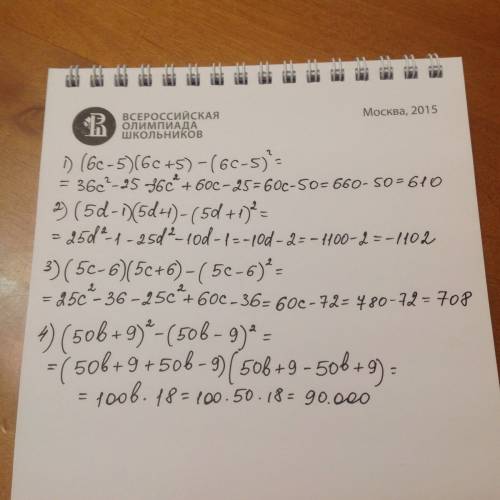 ВСЕРОССИЙСКАЯ
ОЛИМПИАДА
ШКОЛЬНИКОВ
Москва, 2015
1) (6c-5)(6c+5) - (6c-5)²=
= 36c²-25-36c²+60c-25=60c-50=660-50=610
2) (5d-1)(5d+1)-(5d+1)²=
= 25d²-1-25d²-10d-1=-10d-2=-1100-2=-1102
3) (5c-6)(5c+6)-(5c-6)²=
= 25c²-36-25c²+60c-36=60c-72=780-72=708
4) (50b+9)²-(50b-9)²=
=(50b+9+50b-9)(50b+9-50b+9)=
= 100b·18=100·50·18=90.000